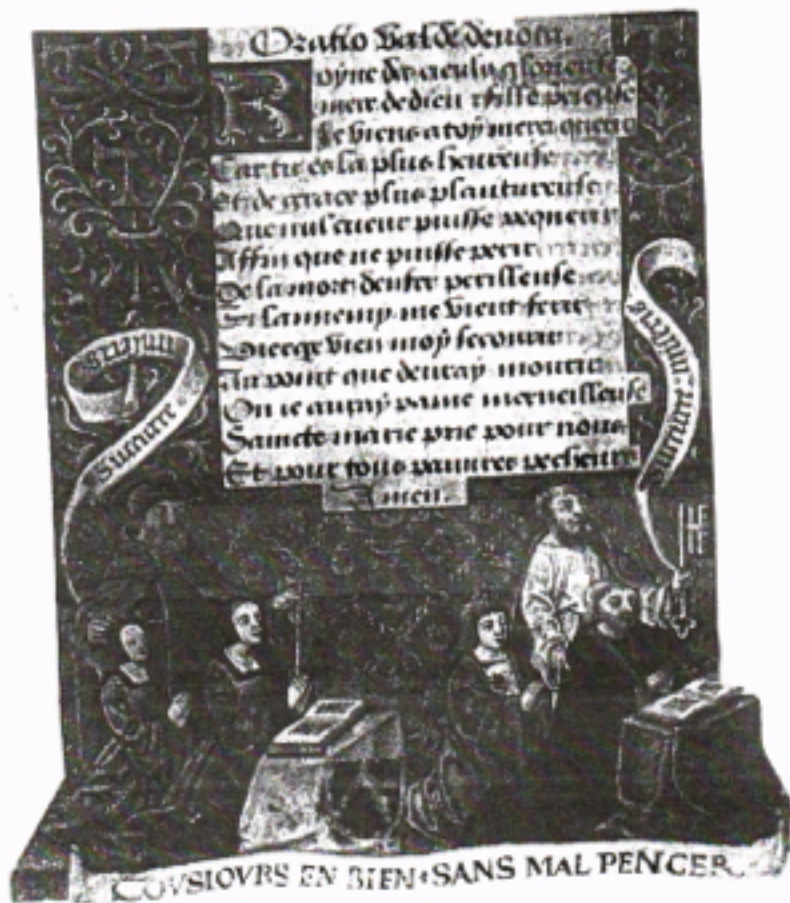 Oratio valde devota.
Royne des cieulx glorieuse
mere de dieu et fille precieuse
Je viens a toy merci querir
Car tu es la plus heureuse
Et de grace plus plantureuse
Que nul cueur puisse requerir
Affin que ne puisse perir
De la mort denfer perilleuse
Si lannemy me vient ferir
Vierge vien moy secourir
Au point que devray mourir
Ou ie auray paine merveilleuse
Saincte marie prie pour nous
Et pour tous pauvres pecheurs
Amen.
Succurre miseris
Succurre miseris
TOVSIOVRS EN BIEN SANS MAL PENCER